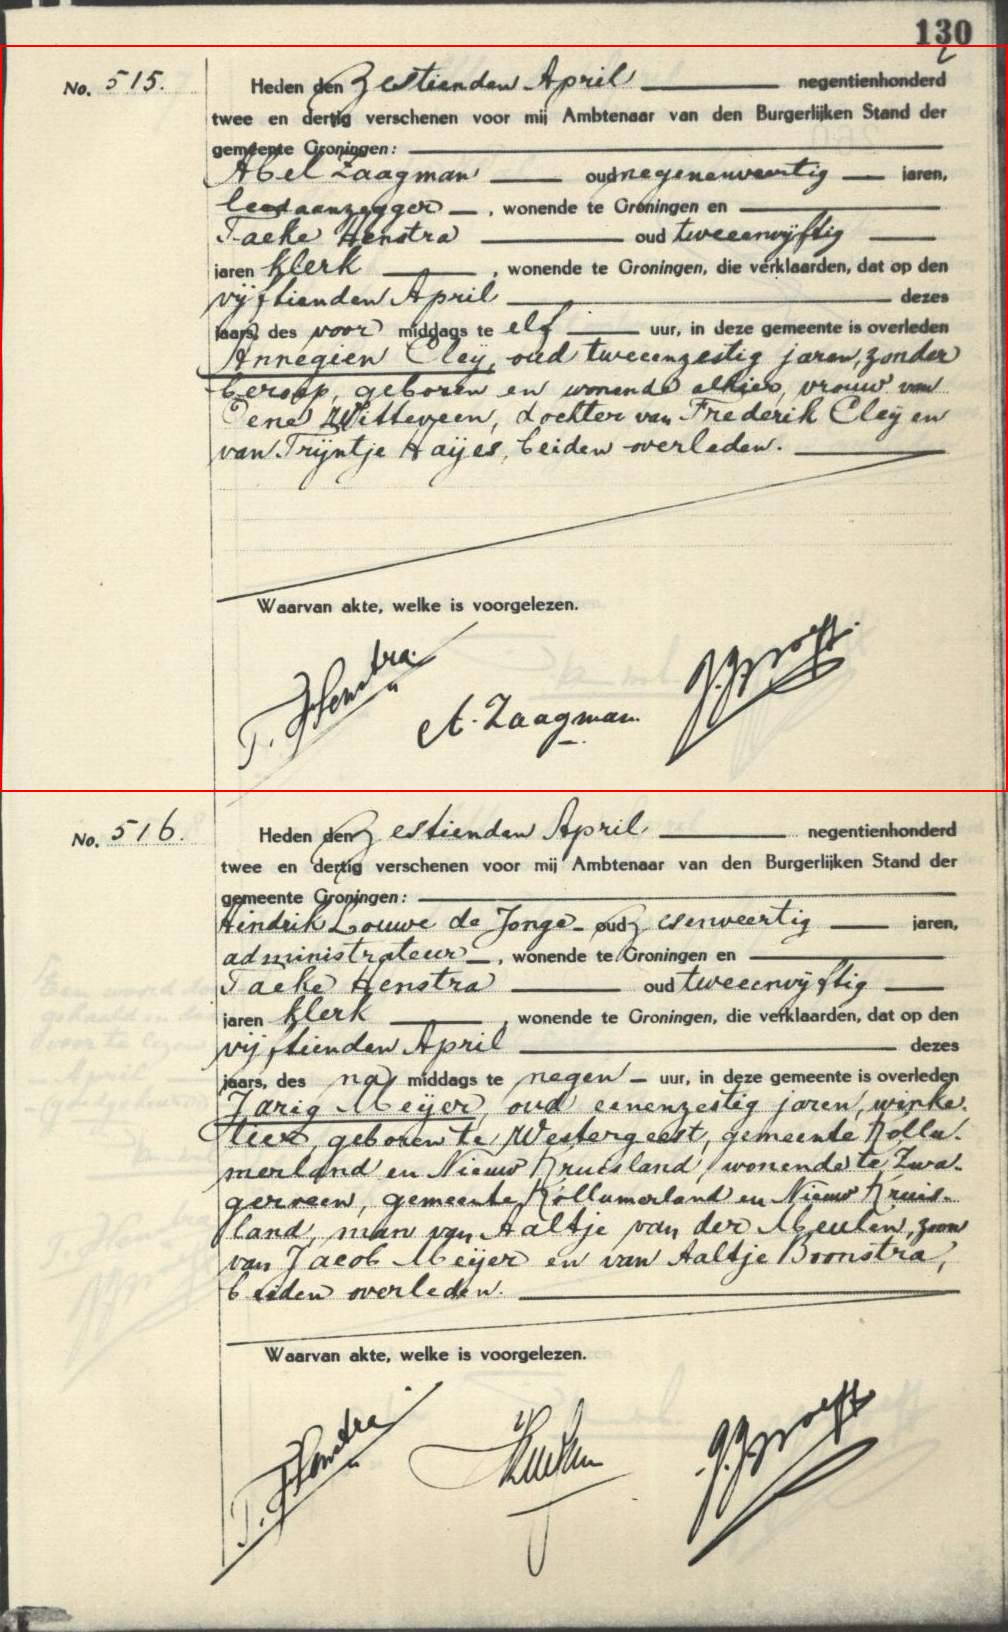 130
No. 515.
Heden den Zestienden April negentienhonderd
twee en dertig verschenen voor mij Ambtenaar van den Burgerlijken Stand der
gemeente Groningen:
Abel Zaagman oud negenenveertig jaren,
leedaanzegger, wonende te Groningen en
Taeke Henstra oud tweeenvijftig
jaren klerk, wonende te Groningen, die verklaarden, dat op den
vijftienden April dezes
jaars, des voor middags te elf uur, in deze gemeente is overleden
Annegien Cleÿ, oud tweeenzestig jaren, zonder
beroep, geboren en wonende alhier, vrouw van
Witteveen, dochter van Frederik Cleÿ en
van Trijntje Haÿes, beiden overleden.
Waarvan akte, welke is voorgelezen.
T. Henstra
A. Zaagman
No. 516.
Heden den Zestienden April negentienhonderd
twee en dertig verschenen voor mij Ambtenaar van den Burgerlijken Stand der
gemeente Groningen:
Hindrik Louwe de Jonge oud zesenveertig jaren,
administrateur, wonende te Groningen en
Taeke Henstra oud tweeenvijftig
jaren klerk, wonende te Groningen, die verklaarden, dat op den
vijftienden April dezes
jaars, des na middags te negen uur, in deze gemeente is overleden
Jarig Meÿer, oud eenenzestig jaren, winke-
lier, geboren te Westergeest, gemeente Kollu-
merland en Nieuw Kruisland, wonende te Zwa-
gerveen, gemeente Kollumerland en Nieuw Kruis-
land, man van Aaltje van der Meulen, zoon
van Jacob Meÿer en van Aaltje Boonstra,
beiden overleden.
Waarvan akte, welke is voorgelezen.
T. Henstra